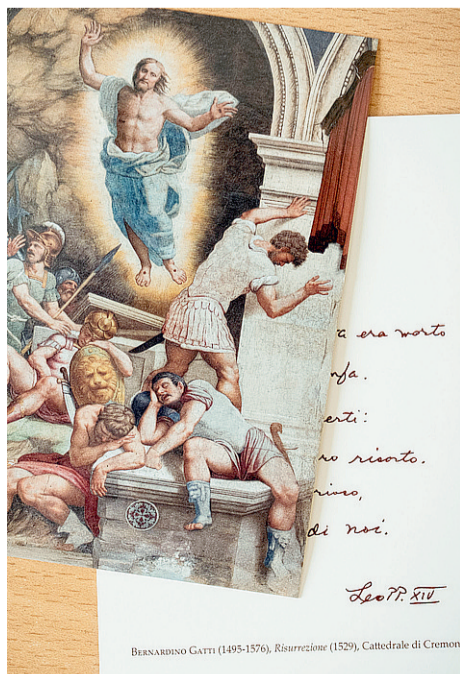 era morto
nfa.
erti:
ro risorto.
rioso,
di noi.
Leo PP. XIV
BERNARDINO GATTI (1495-1576), Risurrezione (1529), Cattedrale di Cremon